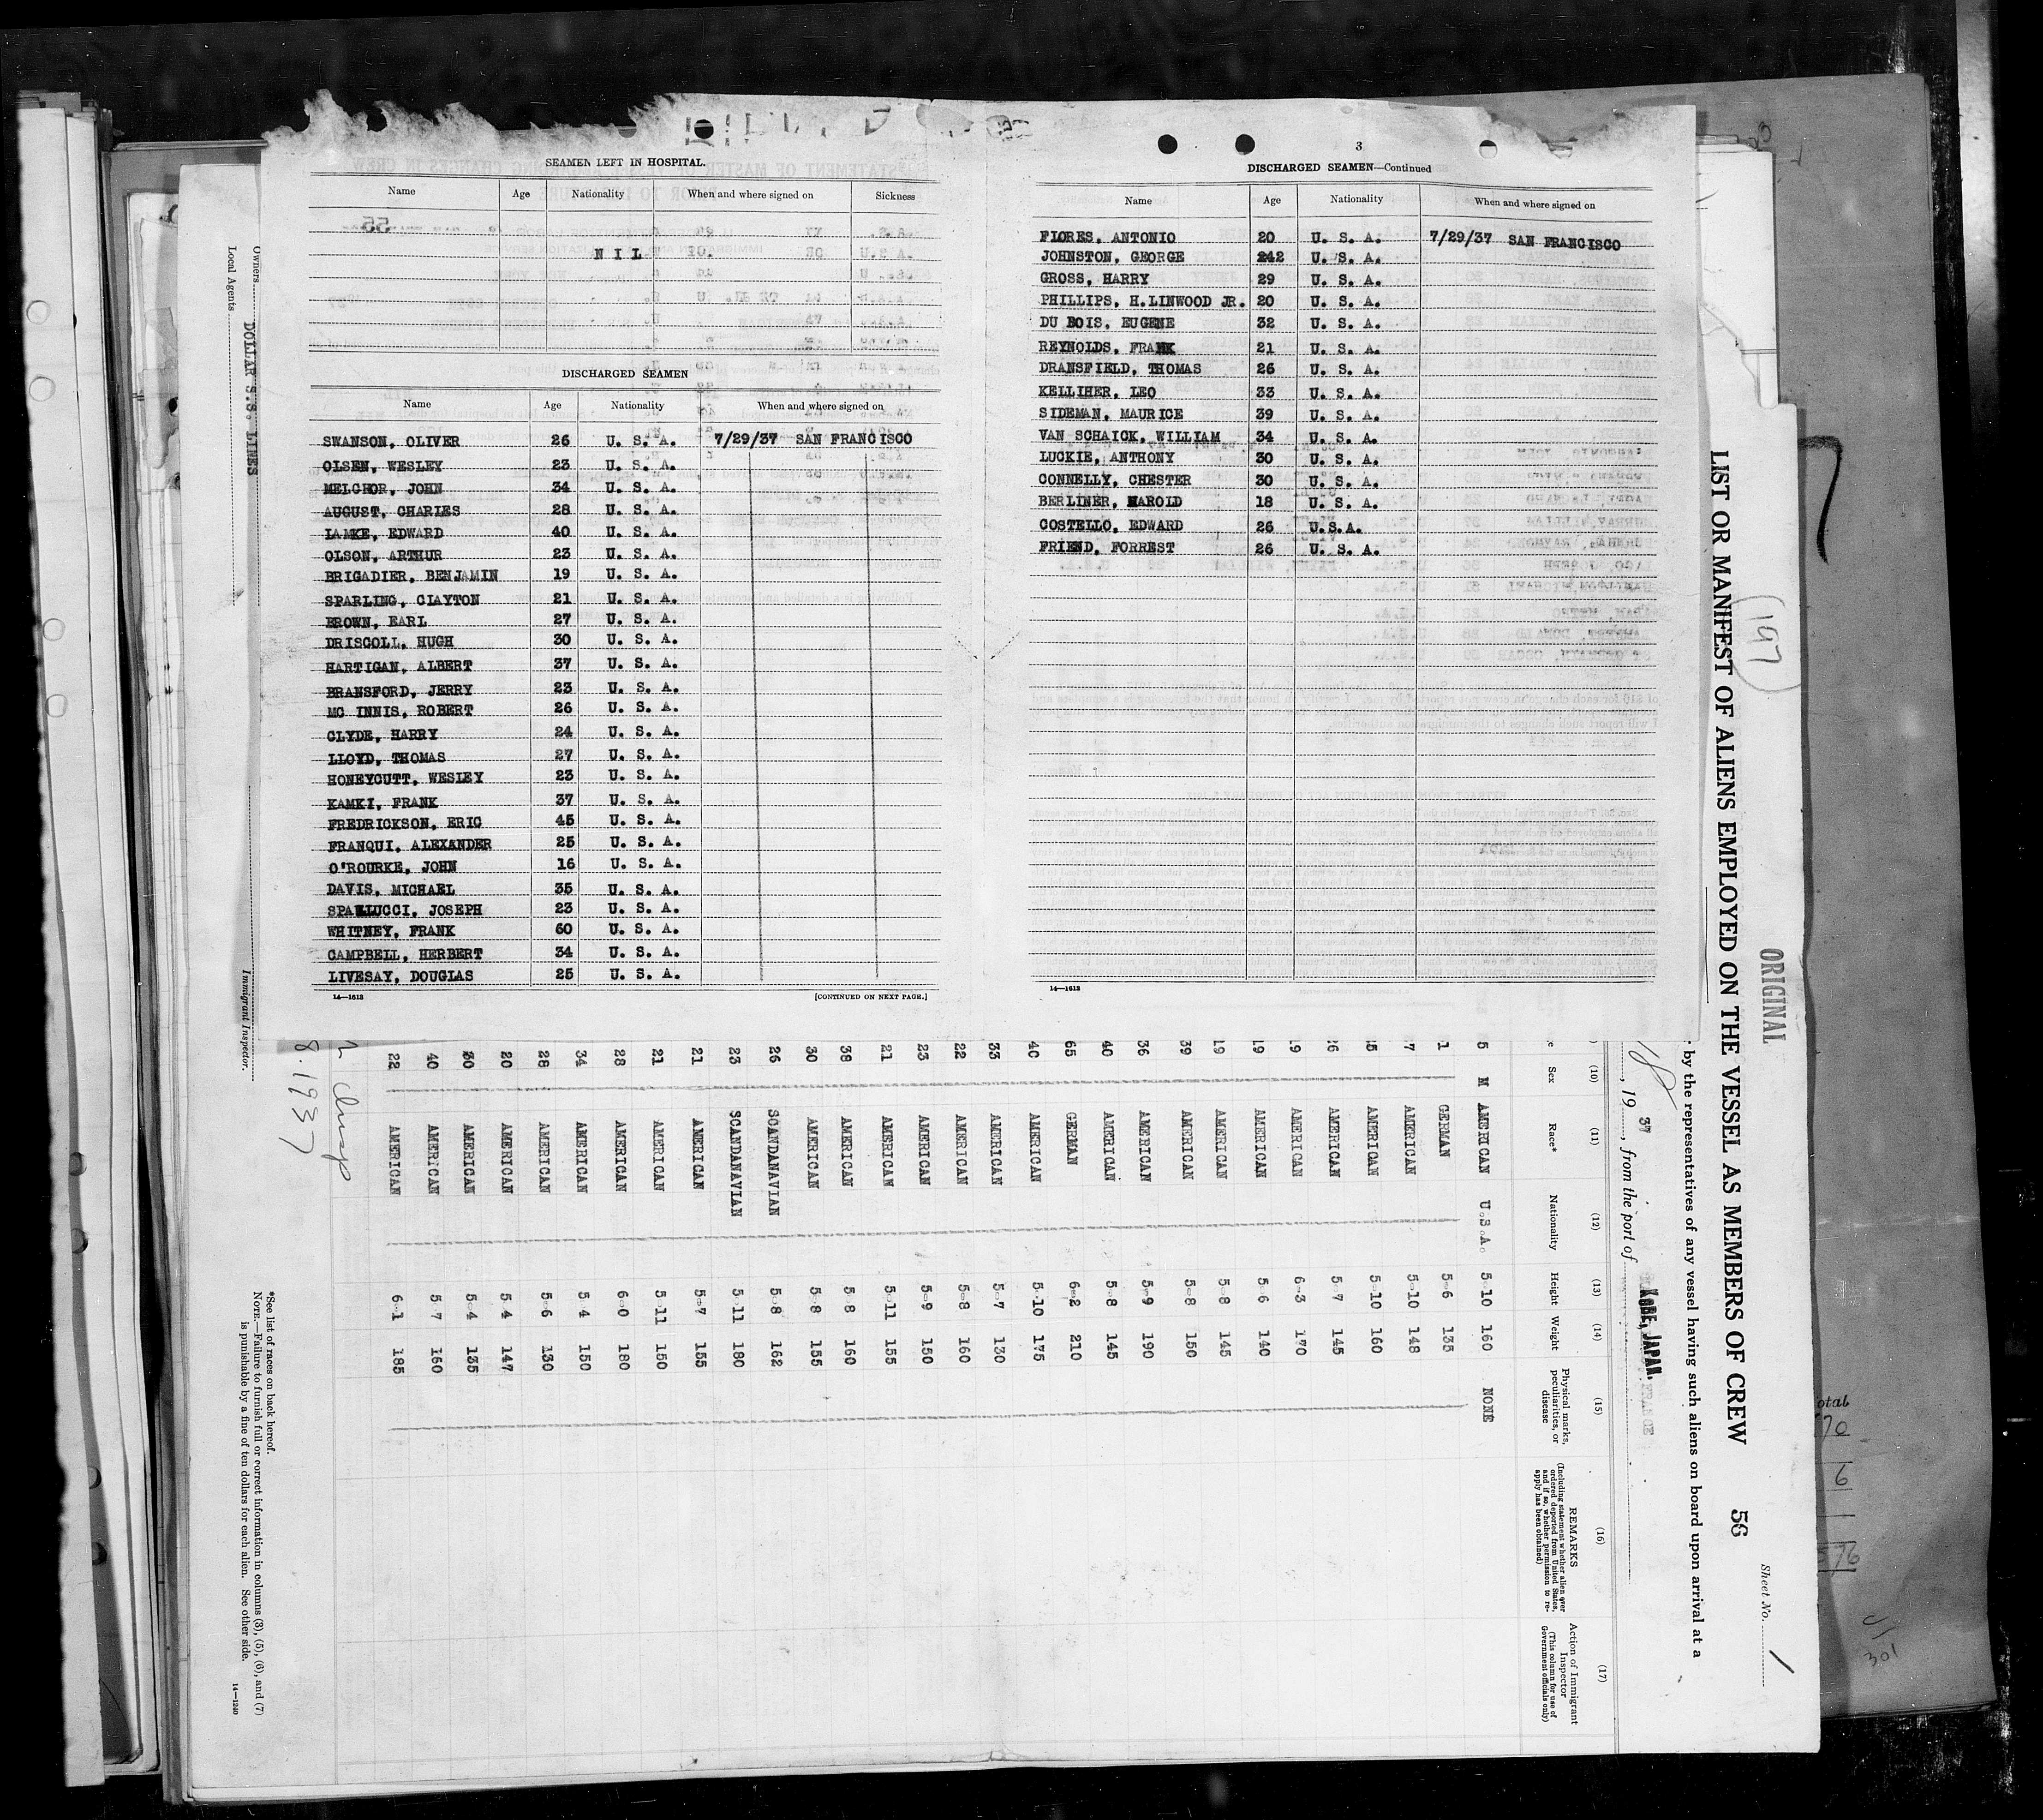 SEAMEN LEFT IN HOSPITAL.
Name Age Nationality When and where signed on Sickness
NIL
DISCHARGED SEAMEN
Name Age Nationality When and where signed on
SWANSON, OLIVER 26 U. S. A. 7/29/37 SAN FRANCISCO
OLSEN, WESLEY 23 U. S. A.
MELCHOR, JOHN 34 U. S. A.
AUGUST, CHARLES 28 U. S. A.
LAMKE, EDWARD 40 U. S. A.
OLSON, ARTHUR 23 U. S. A.
BRIGADIER, BENJAMIN 19 U. S. A.
SPARLING, CLAYTON 21 U. S. A.
BROWN, EARL 27 U. S. A.
DRISCOLL, HUGH 30 U. S. A.
HARTIGAN, ALBERT 37 U. S. A.
BRANSFORD, JERRY 23 U. S. A.
MC INNIS, ROBERT 26 U. S. A.
CLYDE, HARRY 24 U. S. A.
LLOYD, THOMAS 27 U. S. A.
HONEYCUTT, WESLEY 23 U. S. A.
KAMKI, FRANK 37 U. S. A.
FREDRICKSON, ERIC 45 U. S. A.
FRANQUI, ALEXANDER 25 U. S. A.
O'ROURKE, JOHN 16 U. S. A.
DAVIS, MICHAEL 35 U. S. A.
SPALLUCCI, JOSEPH 23 U. S. A.
WHITNEY, FRANK 60 U. S. A.
CAMPBELL, HERBERT 34 U. S. A.
LIVESAY, DOUGLAS 25 U. S. A.
14—1613 [CONTINUED ON NEXT PAGE.]
3
DISCHARGED SEAMEN—Continued
Name Age Nationality When and where signed on
FLORES, ANTONIO 20 U. S. A. 7/29/37 SAN FRANCISCO
JOHNSTON, GEORGE 242 U. S. A.
GROSS, HARRY 29 U. S. A.
PHILLIPS, H.LINWOOD JR. 20 U. S. A.
DU BOIS, EUGENE 32 U. S. A.
REYNOLDS, FRANK 21 U. S. A.
DRANSFIELD, THOMAS 26 U. S. A.
KELLIHER, LEO 33 U. S. A.
SIDEMAN, MAURICE 39 U. S. A.
VAN SCHAICK, WILLIAM 34 U. S. A.
LUCKIE, ANTHONY 30 U. S. A.
CONNELLY, CHESTER 30 U. S. A.
BERLINER, HAROLD 18 U. S. A.
COSTELLO, EDWARD 26 U.S.A.
FRIEND, FORREST 26 U. S. A.
14—1613
ORIGINAL
Sheet No. 1
LIST OR MANIFEST OF ALIENS EMPLOYED ON THE VESSEL AS MEMBERS OF CREW 56
197
by the representatives of any vessel having such aliens on board upon arrival at a
, 19 37, from the port of KOBE, JAPAN.
(10) (11) (12) (13) (14) (15) (16) (17)
Sex Race* Nationality Height Weight Physical marks, peculiarities, or disease REMARKS (Including statement whether alien ever ordered deported from United States, and if so, whether permission to reapply has been obtained) Action of Immigrant Inspector (This column for use of Government officials only)
5 M AMERICAN U.S.A. 5-10 160 NONE
1 GERMAN 5-6 135
7 AMERICAN 5-10 148
5 AMERICAN 5-10 160
26 AMERICAN 5-7 145
19 AMERICAN 6-3 170
19 AMERICAN 5-6 140
19 AMERICAN 5-8 145
39 AMERICAN 5-8 150
36 AMERICAN 5-9 190
40 AMERICAN 5-8 145
65 GERMAN 6-2 210
40 AMERICAN 5-10 175
33 AMERICAN 5-7 130
22 AMERICAN 5-8 160
23 AMERICAN 5-9 150
21 AMERICAN 5-11 155
38 AMERICAN 5-8 160
30 AMERICAN 5-8 155
26 SCANDANAVIAN 5-8 162
23 SCANDANAVIAN 5-11 180
21 AMERICAN 5-7 155
21 AMERICAN 5-11 150
28 AMERICAN 6-0 180
34 AMERICAN 5-4 150
28 AMERICAN 5-6 130
20 AMERICAN 5-4 147
30 AMERICAN 5-4 135
40 AMERICAN 5-7 160
22 AMERICAN 6-1 185
8.1937
*See list of races on back hereof.
NOTE.—Failure to furnish full or correct information in columns (3), (5), (6), and (7)
is punishable by a fine of ten dollars for each alien. See other side.
14—1240
Owners DOLLAR S.S. LINES
Local Agents
Immigrant Inspector.
otal
70
6
576
301